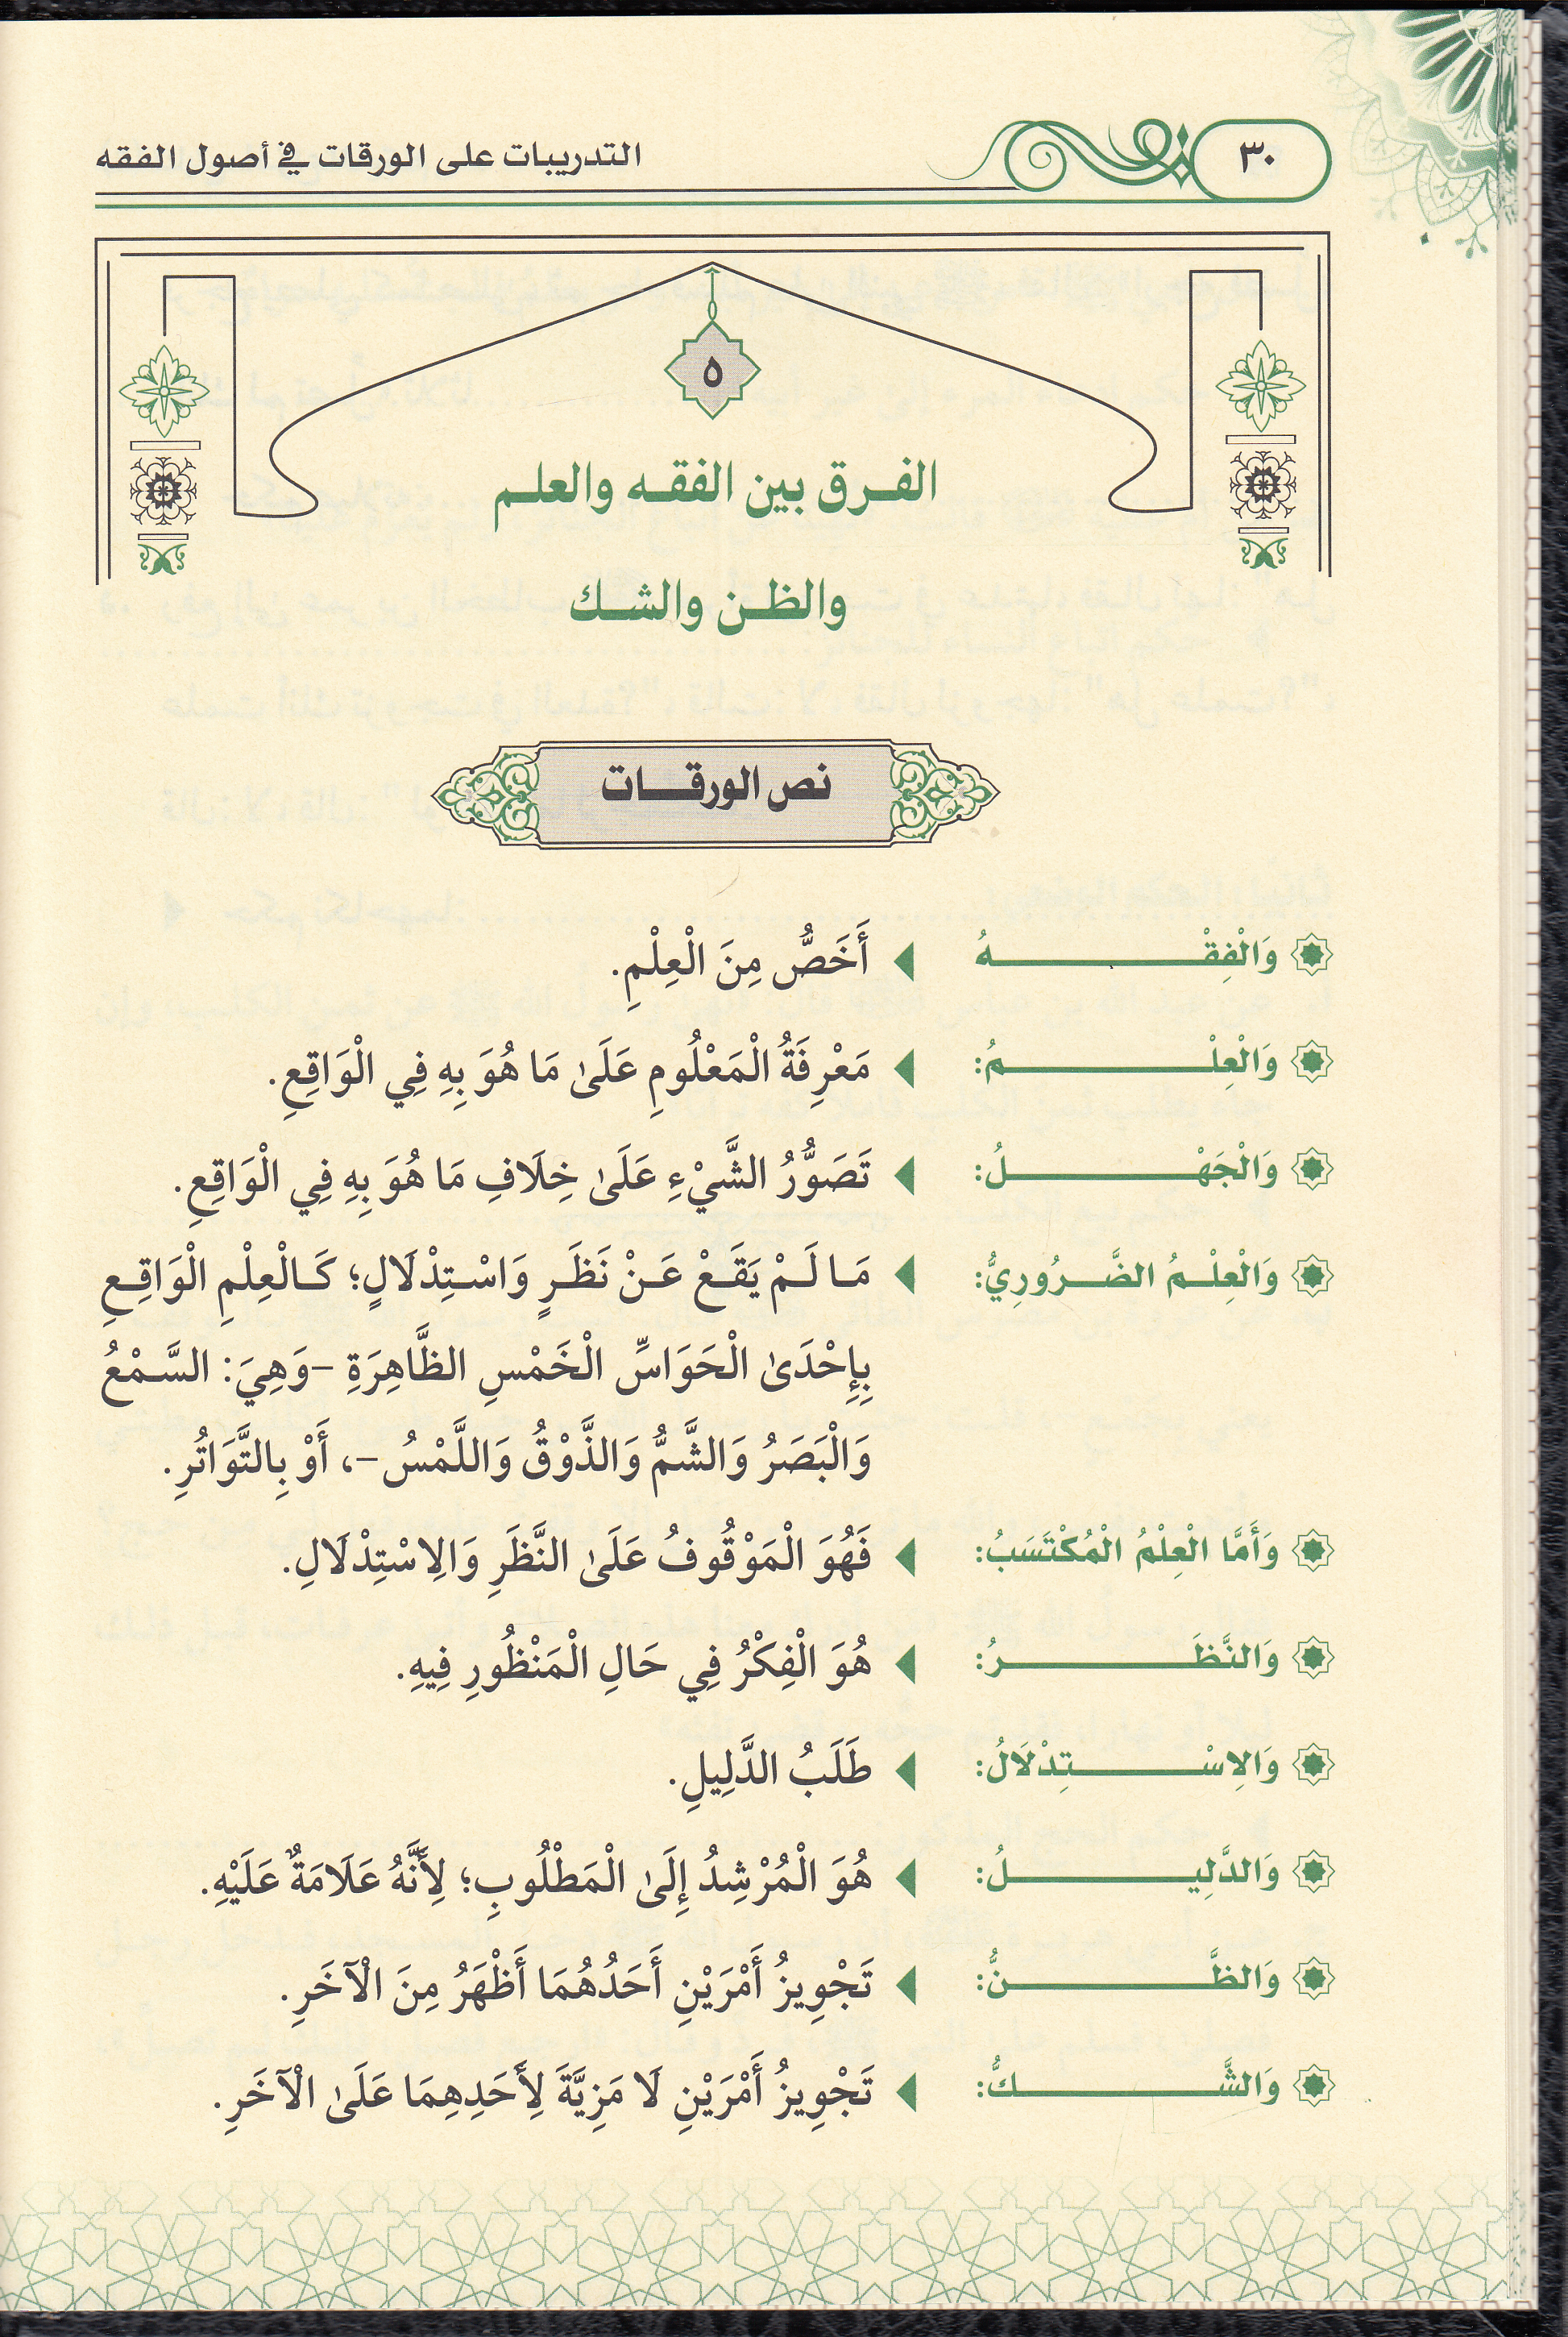 ٣٠
التدريبات على الورقات في أصول الفقه
٥
الفرق بين الفقه والعلم
والظن والشك
نص الورقات
وَالْفِقْهُ أَخَصُّ مِنَ الْعِلْمِ.
وَالْعِلْمُ: مَعْرِفَةُ الْمَعْلُومِ عَلَىٰ مَا هُوَ بِهِ فِي الْوَاقِعِ.
وَالْجَهْلُ: تَصَوُّرُ الشَّيْءِ عَلَىٰ خِلَافِ مَا هُوَ بِهِ فِي الْوَاقِعِ.
وَالْعِلْمُ الضَّرُورِيُّ: مَا لَمْ يَقَعْ عَنْ نَظَرٍ وَاسْتِدْلَالٍ؛ كَالْعِلْمِ الْوَاقِعِ
بِإِحْدَىٰ الْحَوَاسِّ الْخَمْسِ الظَّاهِرَةِ -وَهِيَ: السَّمْعُ
وَالْبَصَرُ وَالشَّمُّ وَالذَّوْقُ وَاللَّمْسُ-، أَوْ بِالتَّوَاتُرِ.
وَأَمَّا الْعِلْمُ الْمُكْتَسَبُ: فَهُوَ الْمَوْقُوفُ عَلَىٰ النَّظَرِ وَالِاسْتِدْلَالِ.
وَالنَّظَرُ: هُوَ الْفِكْرُ فِي حَالِ الْمَنْظُورِ فِيهِ.
وَالِاسْتِدْلَالُ: طَلَبُ الدَّلِيلِ.
وَالدَّلِيلُ: هُوَ الْمُرْشِدُ إِلَىٰ الْمَطْلُوبِ؛ لِأَنَّهُ عَلَامَةٌ عَلَيْهِ.
وَالظَّنُّ: تَجْوِيزُ أَمْرَيْنِ أَحَدُهُمَا أَظْهَرُ مِنَ الْآخَرِ.
وَالشَّكُّ: تَجْوِيزُ أَمْرَيْنِ لَا مَزِيَّةَ لِأَحَدِهِمَا عَلَىٰ الْآخَرِ.